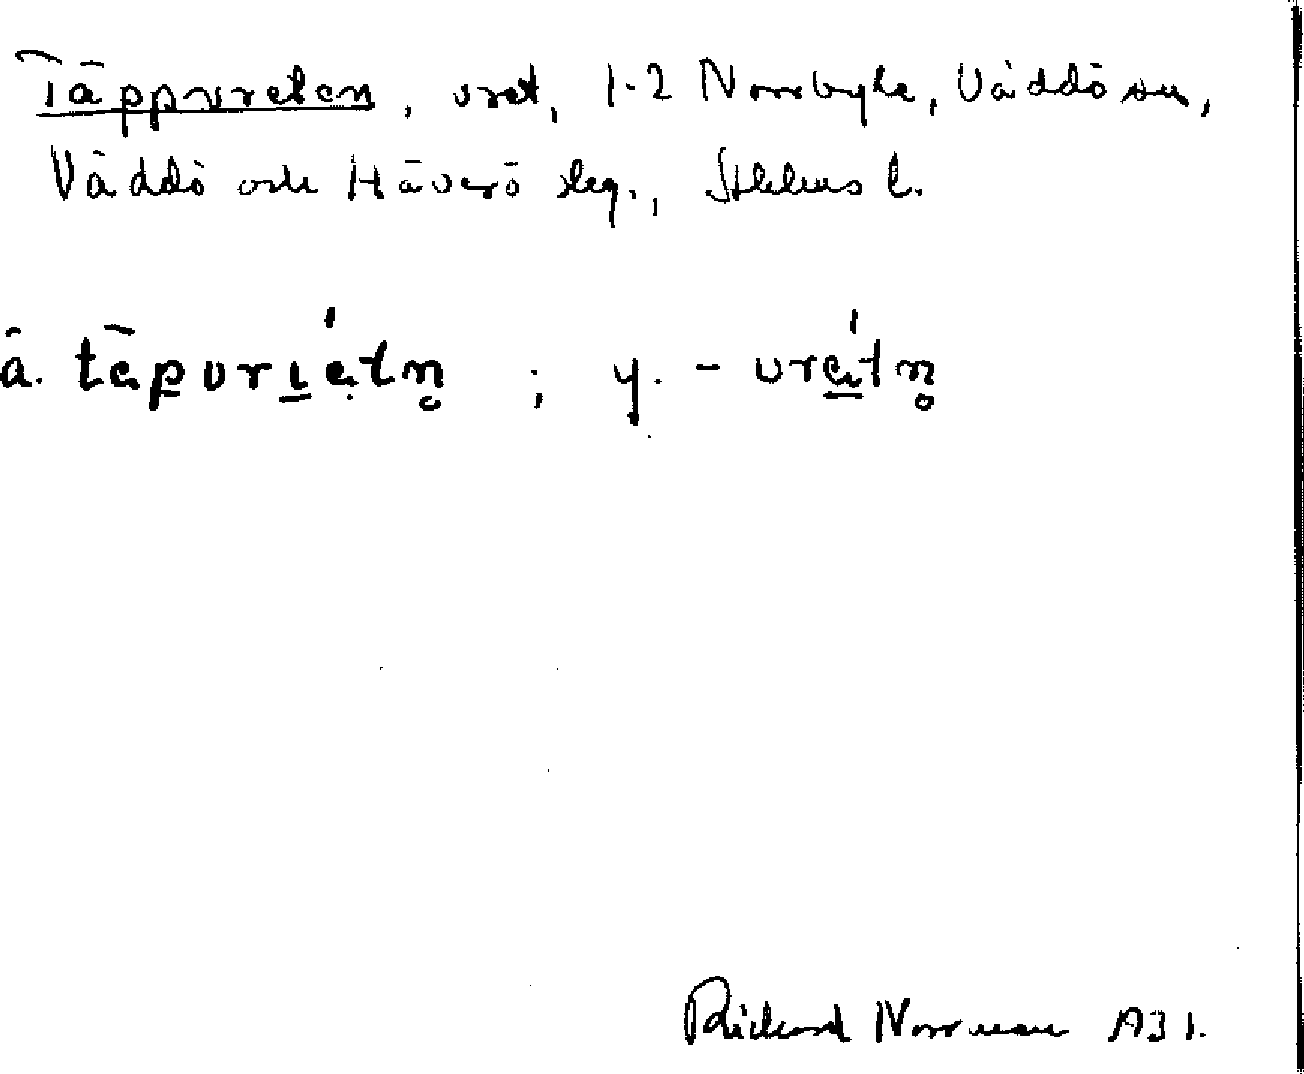 Täppvreten, vret, 1-2 Norrbyle, Väddö sn,
Väddö och Häverö slg., Sthlms l.
ä. täpvriet̯n̥ ; y. - vret̯n̥
Richard Norrman 1931.